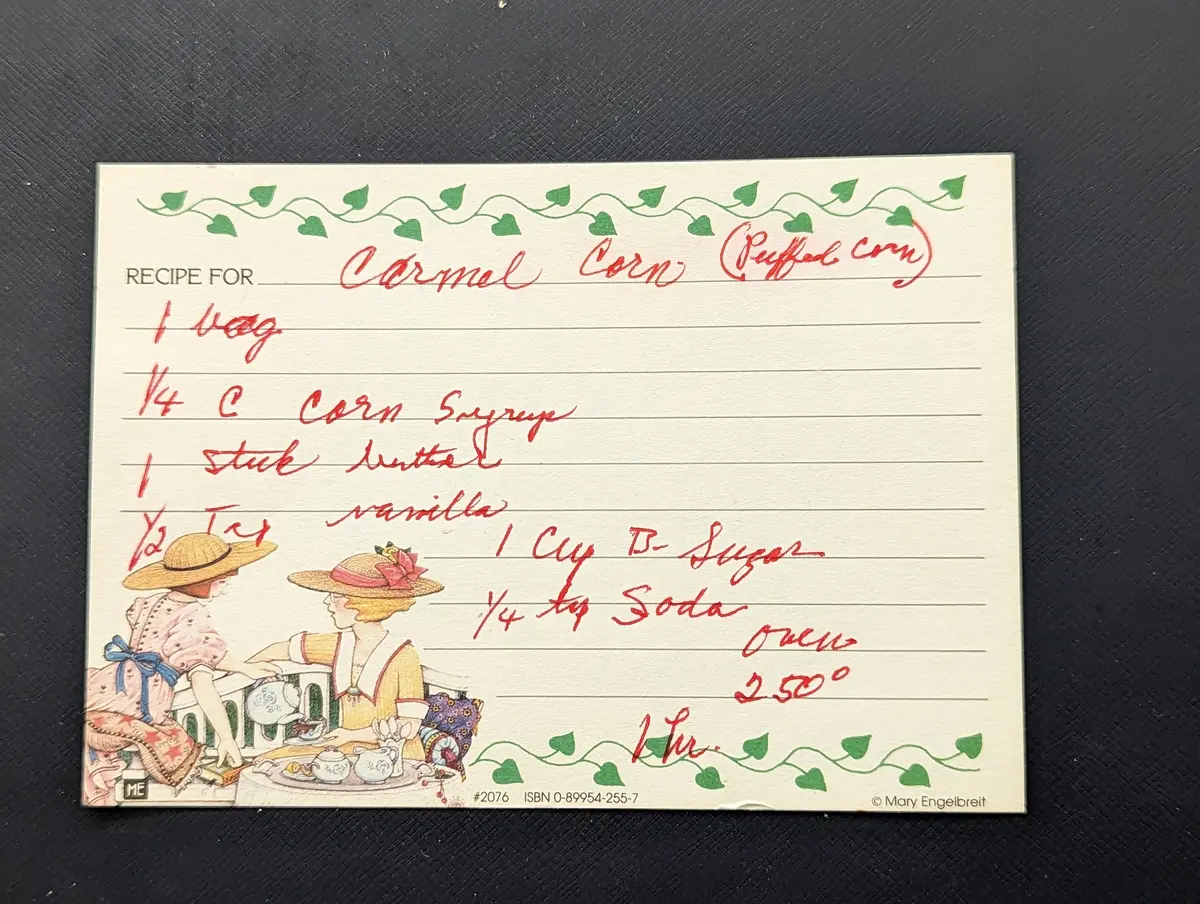 RECIPE FOR Carmel Corn (Puffed Corn)
1 bag
1/4 C Corn Syrup
1 Stick butter
1/2 Tsp vanilla
1 Cup B- Sugar
1/4 tsp Soda
oven
250°
1 hr.
ME
#2076 ISBN 0-89954-255-7
© Mary Engelbreit